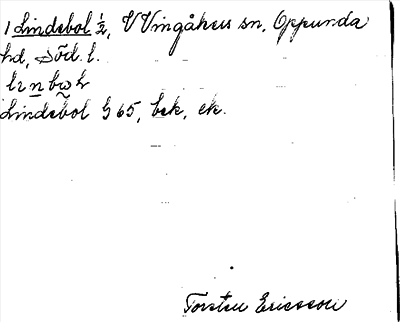 1 Lindsbol ½, V Vingåkers sn, Oppunda
hd, Söd. l.
Lindsbol § 65, bsk, ek.
Torsten Ericsson